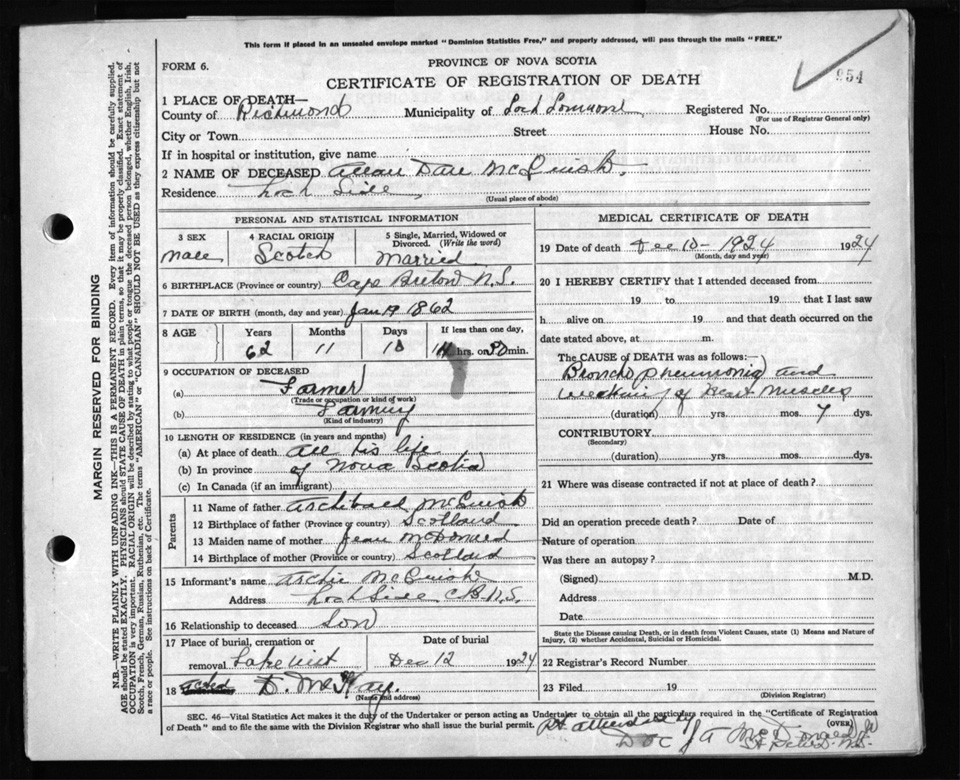 This form if placed in an unsealed envelope marked "Dominion Statistics Free," and properly addressed, will pass through the mails "FREE."
FORM 6.
PROVINCE OF NOVA SCOTIA
954
CERTIFICATE OF REGISTRATION OF DEATH
1 PLACE OF DEATH—
County of Richmond Municipality of Loch Lomond Registered No.
(For use of Registrar General only)
City or Town Street House No.
If in hospital or institution, give name
2 NAME OF DECEASED Allan Dan McCuish.
Residence Loch Side
(Usual place of abode)
PERSONAL AND STATISTICAL INFORMATION
3 SEX 4 RACIAL ORIGIN 5 Single, Married, Widowed or Divorced. (Write the word)
Male Scotch Married
6 BIRTHPLACE (Province or country) Cape Breton N.S.
7 DATE OF BIRTH (month, day and year) Jan 1862
8 AGE Years Months Days If less than one day,
62 11 hrs. or min.
9 OCCUPATION OF DECEASED
(a) Farmer
(Trade or occupation or kind of work)
(b) Farming
(Kind of industry)
10 LENGTH OF RESIDENCE (in years and months)
(a) At place of death all his life
(b) In province of Nova Scotia
(c) In Canada (if an immigrant)
Parents
11 Name of father Archibald McCuish
12 Birthplace of father (Province or country) Scotland
13 Maiden name of mother Jean McDonald
14 Birthplace of mother (Province or country) Scotland
15 Informant's name Archie McCuish
Address Loch Side C B N.S.
16 Relationship to deceased Son
17 Place of burial, cremation or removal Date of burial
Dec 12 1924
18 D. McKay.
(Name and address)
MEDICAL CERTIFICATE OF DEATH
19 Date of death Dec 10 - 1924 1924
(Month, day and year)
20 I HEREBY CERTIFY that I attended deceased from
19 to 19 that I last saw
h alive on 19 and that death occurred on the
date stated above, at m.
The CAUSE OF DEATH was as follows:
Broncho pneumonia and
of Heart Muscles
(duration) yrs. mos. 7 dys.
CONTRIBUTORY
(Secondary)
(duration) yrs. mos. dys.
21 Where was disease contracted if not at place of death?
Did an operation precede death? Date of
Nature of operation
Was there an autopsy?
(Signed) M.D.
Address
Date
State the Disease causing Death, or in death from Violent Causes, state (1) Means and Nature of Injury, (2) whether Accidental, Suicidal or Homicidal.
22 Registrar's Record Number
23 Filed 19
(Division Registrar)
SEC. 46—Vital Statistics Act makes it the duty of the Undertaker or person acting as Undertaker to obtain all the particulars required in the "Certificate of Registration
of Death" and to file the same with the Division Registrar who shall issue the burial permit.
(OVER)
attended by
Doc
MARGIN RESERVED FOR BINDING
N.B.—WRITE PLAINLY WITH UNFADING INK—THIS IS A PERMANENT RECORD. Every item of information should be carefully supplied.
AGE should be stated EXACTLY. PHYSICIANS should STATE CAUSE OF DEATH in plain terms, so that it may be properly classified. Exact statement of
OCCUPATION is very important. RACIAL ORIGIN will be described by stating to what people or tongue the deceased person belonged, whether English, Irish,
Scotch, French, German, Russian, Ruthenian, etc. The terms "AMERICAN" or "CANADIAN" SHOULD NOT BE USED as they express citizenship but not
a race or people. See instructions on back of Certificate.